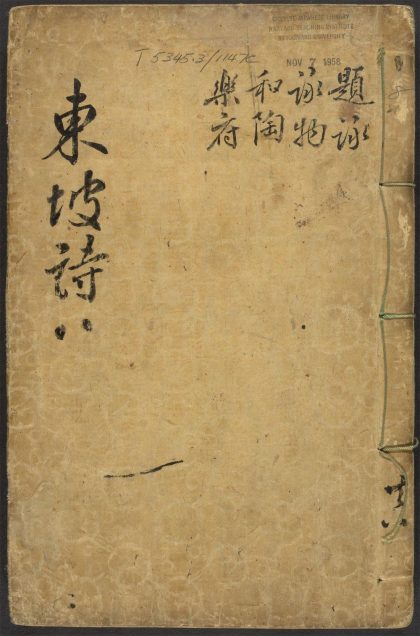 CHINESE-JAPANESE LIBRARY
HARVARD-YENCHING INSTITUTE
AT HARVARD UNIVERSITY
NOV 7 1958
T 5345.3/1147c
題詠
詠物
和陶
樂府
東坡詩八